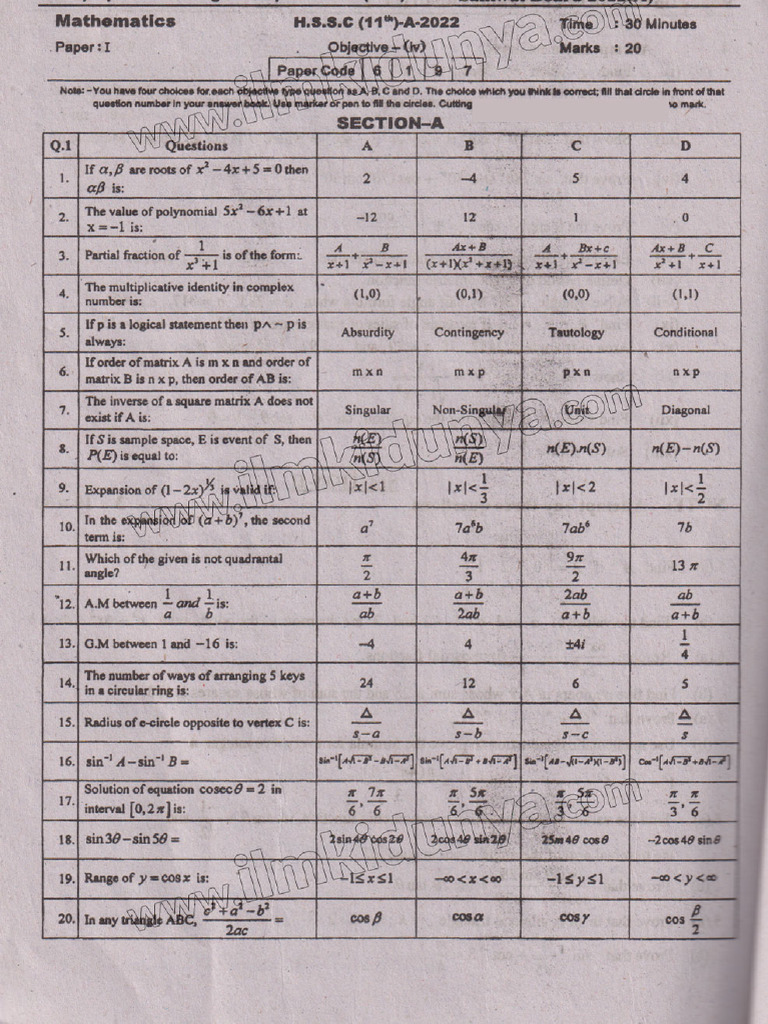 Mathematics H.S.S.C (11th)-A-2022 Time : 30 Minutes
Paper : I Objective – (iv) Marks : 20
Paper Code 6 1 9 7
Note: - You have four choices for each objective type question as A, B, C and D. The choice which you think is correct; fill that circle in front of that
question number in your answer book. Use marker or pen to fill the circles. Cutting mark.
SECTION–A
Q.1 Questions A B C D
1. If α, β are roots of x² – 4x + 5 = 0 then αβ is: 2 –4 5 4
2. The value of polynomial 5x² – 6x + 1 at x = –1 is: –12 12 1 0
3. Partial fraction of 1/(x³+1) is of the form: A/(x+1) + B/(x²–x+1) (Ax+B)/((x+1)(x²+x+1)) A/(x+1) + (Bx+c)/(x²–x+1) (Ax+B)/(x²+1) + C/(x+1)
4. The multiplicative identity in complex number is: (1,0) (0,1) (0,0) (1,1)
5. If p is a logical statement then p∧~p is always: Absurdity Contingency Tautology Conditional
6. If order of matrix A is m x n and order of matrix B is n x p, then order of AB is: m x n m x p p x n n x p
7. The inverse of a square matrix A does not exist if A is: Singular Non-Singular Unit Diagonal
8. If S is sample space, E is event of S, then P(E) is equal to: n(E)/n(S) n(S)/n(E) n(E).n(S) n(E) – n(S)
9. Expansion of (1–2x)^(1/3) is valid if: |x|<1 |x|<1/3 |x|<2 |x|<1/2
10. In the expansion of (a+b)⁷, the second term is: a⁷ 7a⁶b 7ab⁶ 7b
11. Which of the given is not quadrantal angle? π/2 4π/3 9π/2 13 π
12. A.M between 1/a and 1/b is: (a+b)/ab (a+b)/2ab 2ab/(a+b) ab/(a+b)
13. G.M between 1 and –16 is: –4 4 ±4i 1/4
14. The number of ways of arranging 5 keys in a circular ring is: 24 12 6 5
15. Radius of e-circle opposite to vertex C is: Δ/(s–a) Δ/(s–b) Δ/(s–c) Δ/s
16. sin⁻¹ A – sin⁻¹ B = Sin⁻¹[A√1–B² – B√1–A²] Sin⁻¹[A√1–B² + B√1–A²] Sin⁻¹[AB – √(1–A²)(1–B²)] Cos⁻¹[A√1–B² + B√1–A²]
17. Solution of equation cosec θ = 2 in interval [0, 2π] is: π/6, 7π/6 π/6, 5π/6 π/3, 5π/6 π/3, π/6
18. sin 3θ – sin 5θ = 2 sin 4θ cos 2θ 2 cos 4θ sin 2θ 25in 4θ cos θ –2 cos 4θ sin θ
19. Range of y = cos x is: –1≤x≤1 –∞<x<∞ –1≤y≤1 –∞<y<∞
20. In any triangle ABC, (c²+a²–b²)/2ac = cos β cos α cos γ cos β/2
www.ilmkidunya.com
www.ilmkidunya.com
www.ilmkidunya.com